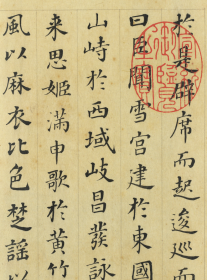 於是避席而起逡巡而
曰臣聞雪宮建於東國
山峙於西域岐昌發詠
来思姬滿申歌於黄竹
風以麻衣比色楚謠以